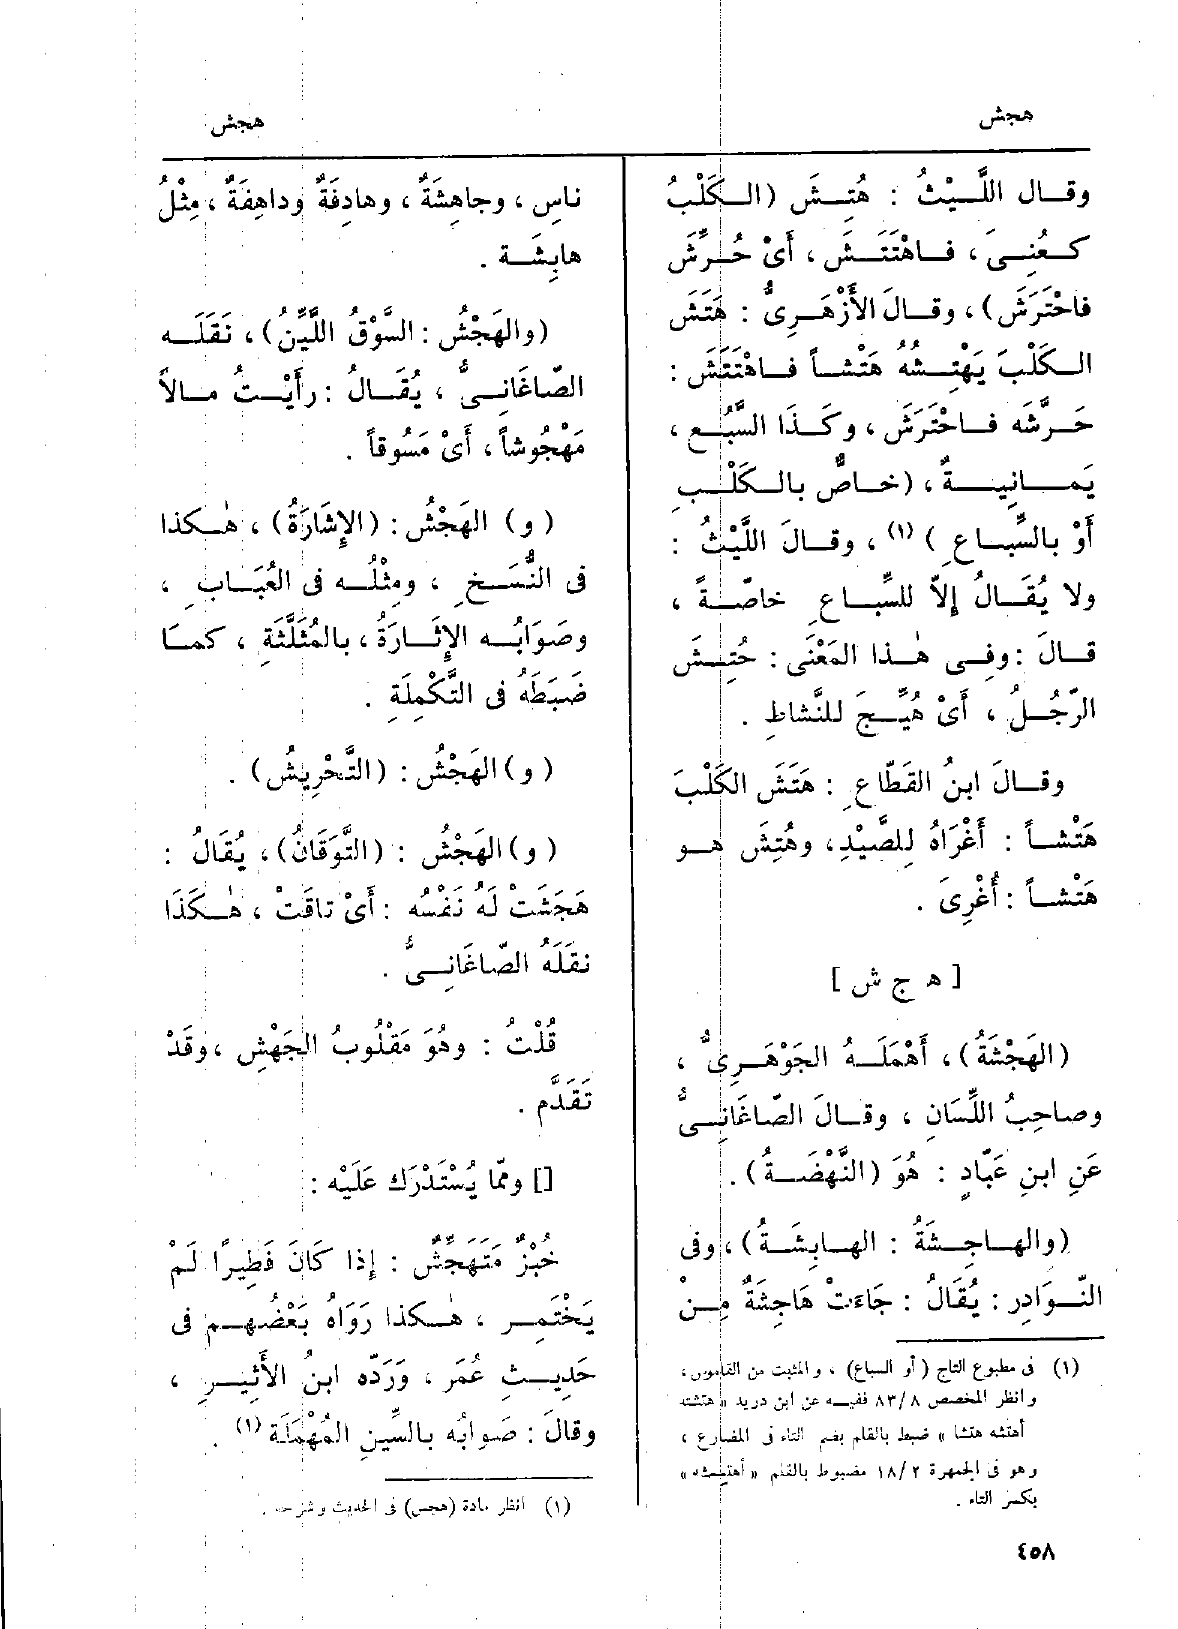 هجش
هجش
وقال اللَّيْثُ : هُتِشَ (الكَلْبُ
كعُنِىَ ، فاهْتَتَشَ ، أَىْ حُرِّشَ
فاحْتَرَشَ) ، وقالَ الأَزْهَرِىُّ : هَتَشَ
الكَلْبَ يَهْتِشُهُ هَتْشاً فاهْتَتَشَ :
حَرَّشَه فاحْتَرَشَ ، وكَذَا السَّبُع ،
يَمانِيةٌ ، (خاصٌّ بالكَلْبِ
أَوْ بالسِّباعِ ) (١) ، وقالَ اللَّيْثُ :
ولا يُقَالُ إِلاّ للسِّباعِ خاصّةً ،
قالَ : وفِى هٰذا المَعْنَى : حُتِشَ
الرّجُلُ ، أَىْ هُيِّجَ للنَّشاطِ .
وقالَ ابنُ القَطّاعِ : هَتَشَ الكَلْبَ
هَتْشاً : أَغْرَاهُ لِلصَّيْدِ، وهُتِشَ هو
هَتْشاً : أُغْرِىَ .
[ ه ج ش ]
(الهَجْشَةُ) ، أَهْمَلَهُ الجَوْهَرِىُّ ،
وصاحِبُ اللِّسَانِ ، وقالَ الصّاغَانِىُّ
عَنِ ابنِ عَبّادٍ : هُوَ (النَّهْضَةُ) .
(والهاجِشَةُ : الهابِشَةُ) ، وفى
النّوَادِر : يُقَالُ : جَاءَتْ هَاجِشَةٌ مِنْ
(١) فى مطبوع التاج ( أو السباع) ، والمثبت من القاموس ،
وانظر المخصص ٨٣/٨ ففيه عن ابن دريد « هتشته
أهتشه هتشا » ضبط بالقلم بضم التاء فى المضارع ،
وهو فى الجمهرة ١٨/٢ مضبوط بالقلم « أهتِشه »
بكسر التاء .
ناس ، وجاهِشَةٌ ، وهادِفَةٌ وداهِفَةٌ ، مِثْلُ
هابِشَة .
(والهَجْشُ : السَّوْقُ اللَّيِّنُ) ، نَقَلَه
الصّاغَانِىُّ ، يُقَالُ : رأَيْتُ مالاً
مَهْجُوشاً ، أَىْ مَسُوقاً .
( و) الهَجْشُ : (الإِشَارَةُ) ، هٰكذا
فى النُّسَخِ ، ومِثْلُه فى العُبَابِ ،
وصَوَابُه الإِثَارَةُ ، بالمُثَلَّثَةِ ، كما
ضَبَطَهُ فى التَّكْمِلَةِ .
( و) الهَجْشُ : (التَّحْرِيشُ) .
( و) الهَجْشُ : (التَّوَقَانُ) ، يُقَالُ :
هَجَشَتْ لَهُ نَفْسُه : أَىْ تاقَتْ ، هٰكَذَا
نقَلَهُ الصّاغَانِىُّ .
قُلْتُ : وهُوَ مَقْلُوبُ الجَهْشِ ، وقَدْ
تَقَدَّم .
[] وممّا يُسْتَدْرَك عَلَيْه :
خُبْزٌ مُتَهَجِّشٌ : إِذا كَانَ فَطِيرًا لَمْ
يَخْتَمِر ، هٰكذا رَوَاهُ بَعْضُهم فى
حَدِيثِ عُمَر ، وَرَدّه ابنُ الأَثِيرِ ،
وقالَ : صَوابُه بالسِّينِ المُهْمَلَة (١) .
(١) انظر مادة (هجس) فى الحديث وشرحه .
٤٥٨